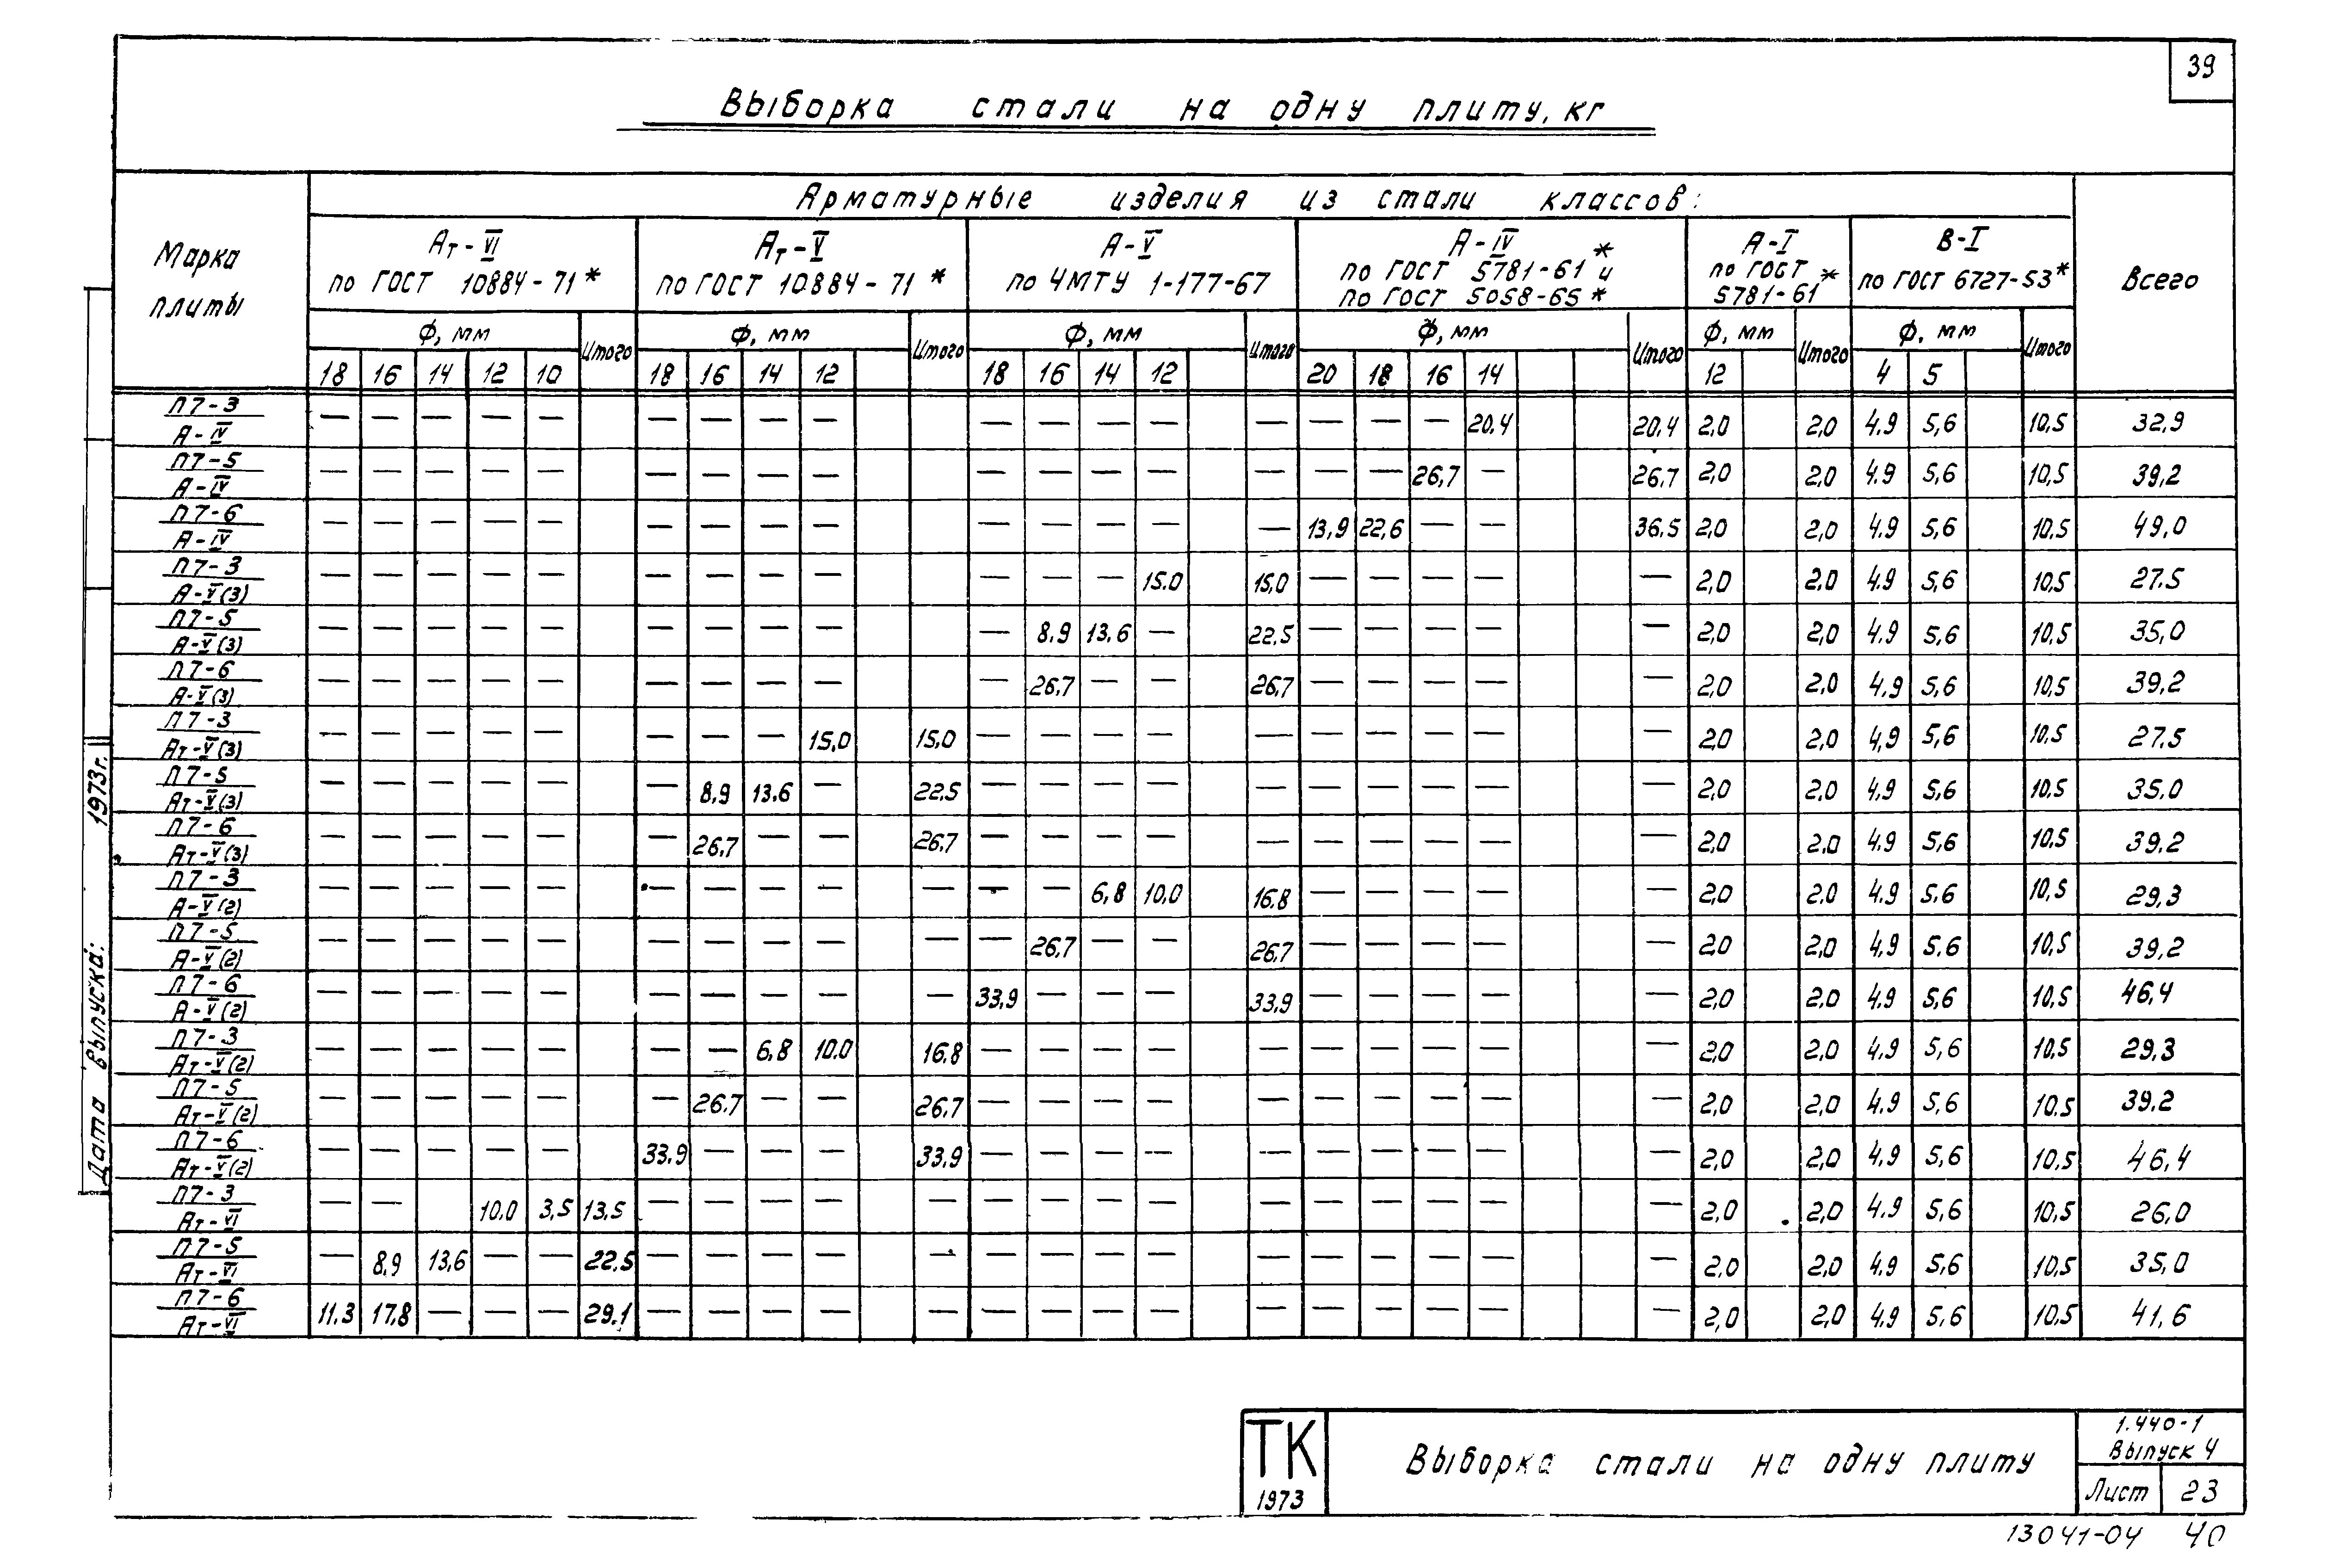 39
Выборка стали на одну плиту, кг
Марка плиты
Арматурные изделия из стали классов:
Всего
Ат-VI по ГОСТ 10884-71*
Ат-V по ГОСТ 10884-71*
А-V по ЧМТУ 1-177-67
А-IV по ГОСТ 5781-61* и по ГОСТ 5058-65*
А-I по ГОСТ 5781-61*
В-I по ГОСТ 6727-53*
Ф, мм Итого Ф, мм Итого Ф, мм Итого Ф, мм Итого Ф, мм Итого Ф, мм Итого
18 16 14 12 10 18 16 14 12 18 16 14 12 20 18 16 14 12 4 5
П7-3 А-IV — — — — — — — — — — — — — — — — — 20.4 20.4 2,0 2,0 4.9 5,6 10,5 32,9
П7-5 А-IV — — — — — — — — — — — — — — — — 26,7 — 26,7 2,0 2,0 4.9 5,6 10,5 39,2
П7-6 А-IV — — — — — — — — — — — — — — 13,9 22,6 — — 36,5 2,0 2,0 4.9 5,6 10.5 49,0
П7-3 А-V(3) — — — — — — — — — — — — 15.0 15,0 — — — — — 2,0 2,0 4.9 5,6 10,5 27.5
П7-5 А-V(3) — — — — — — — — — — 8.9 13.6 — 22,5 — — — — — 2,0 2,0 4.9 5,6 10.5 35,0
П7-6 А-V(3) — — — — — — — — — — 26,7 — — 26,7 — — — — — 2,0 2,0 4,9 5,6 10,5 39,2
П7-3 Ат-V(3) — — — — — — — — 15,0 15,0 — — — — — — — — — — 2,0 2,0 4,9 5,6 10,5 27.5
П7-5 Ат-V(3) — — — — — — 8,9 13.6 — 22,5 — — — — — — — — — — 2,0 2,0 4,9 5,6 10,5 35.0
П7-6 Ат-V(3) — — — — — — 26,7 — — 26,7 — — — — — — — — — — 2,0 2.0 4.9 5,6 10,5 39,2
П7-3 А-V(2) — — — — — — — — — — — — 6,8 10,0 16.8 — — — — — 2,0 2.0 4.9 5,6 10,5 29,3
П7-5 А-V(2) — — — — — — — — — — — 26,7 — — 26,7 — — — — — 2,0 2,0 4,9 5,6 10,5 39,2
П7-6 А-V(2) — — — — — — — — — — 33,9 — — — 33,9 — — — — — 2,0 2,0 4.9 5,6 10,5 46,4
П7-3 Ат-V(2) — — — — — — — 6,8 10.0 16.8 — — — — — — — — — — 2,0 2,0 4.9 5,6 10,5 29,3
П7-5 Ат-V(2) — — — — — — 26,7 — — 26,7 — — — — — — — — — — 2,0 2,0 4.9 5,6 10.5 39.2
П7-6 Ат-V(2) — — — — — 33,9 — — — 33,9 — — — — — — — — — — 2,0 2,0 4,9 5,6 10,5 46,4
П7-3 Ат-VI — — 10,0 3,5 13,5 — — — — — — — — — — — — — — — 2,0 2,0 4.9 5,6 10,5 26,0
П7-5 Ат-VI — 8,9 13,6 — — 22,5 — — — — — — — — — — — — — — — 2,0 2,0 4.9 5,6 10,5 35,0
П7-6 Ат-VI 11.3 17,8 — — — 29.1 — — — — — — — — — — — — — — — 2,0 2,0 4.9 5,6 10.5 41,6
Дата выпуска: 1973г.
ТК
1973
Выборка стали на одну плиту
1.440-1
Выпуск 4
Лист 23
13041-04 40